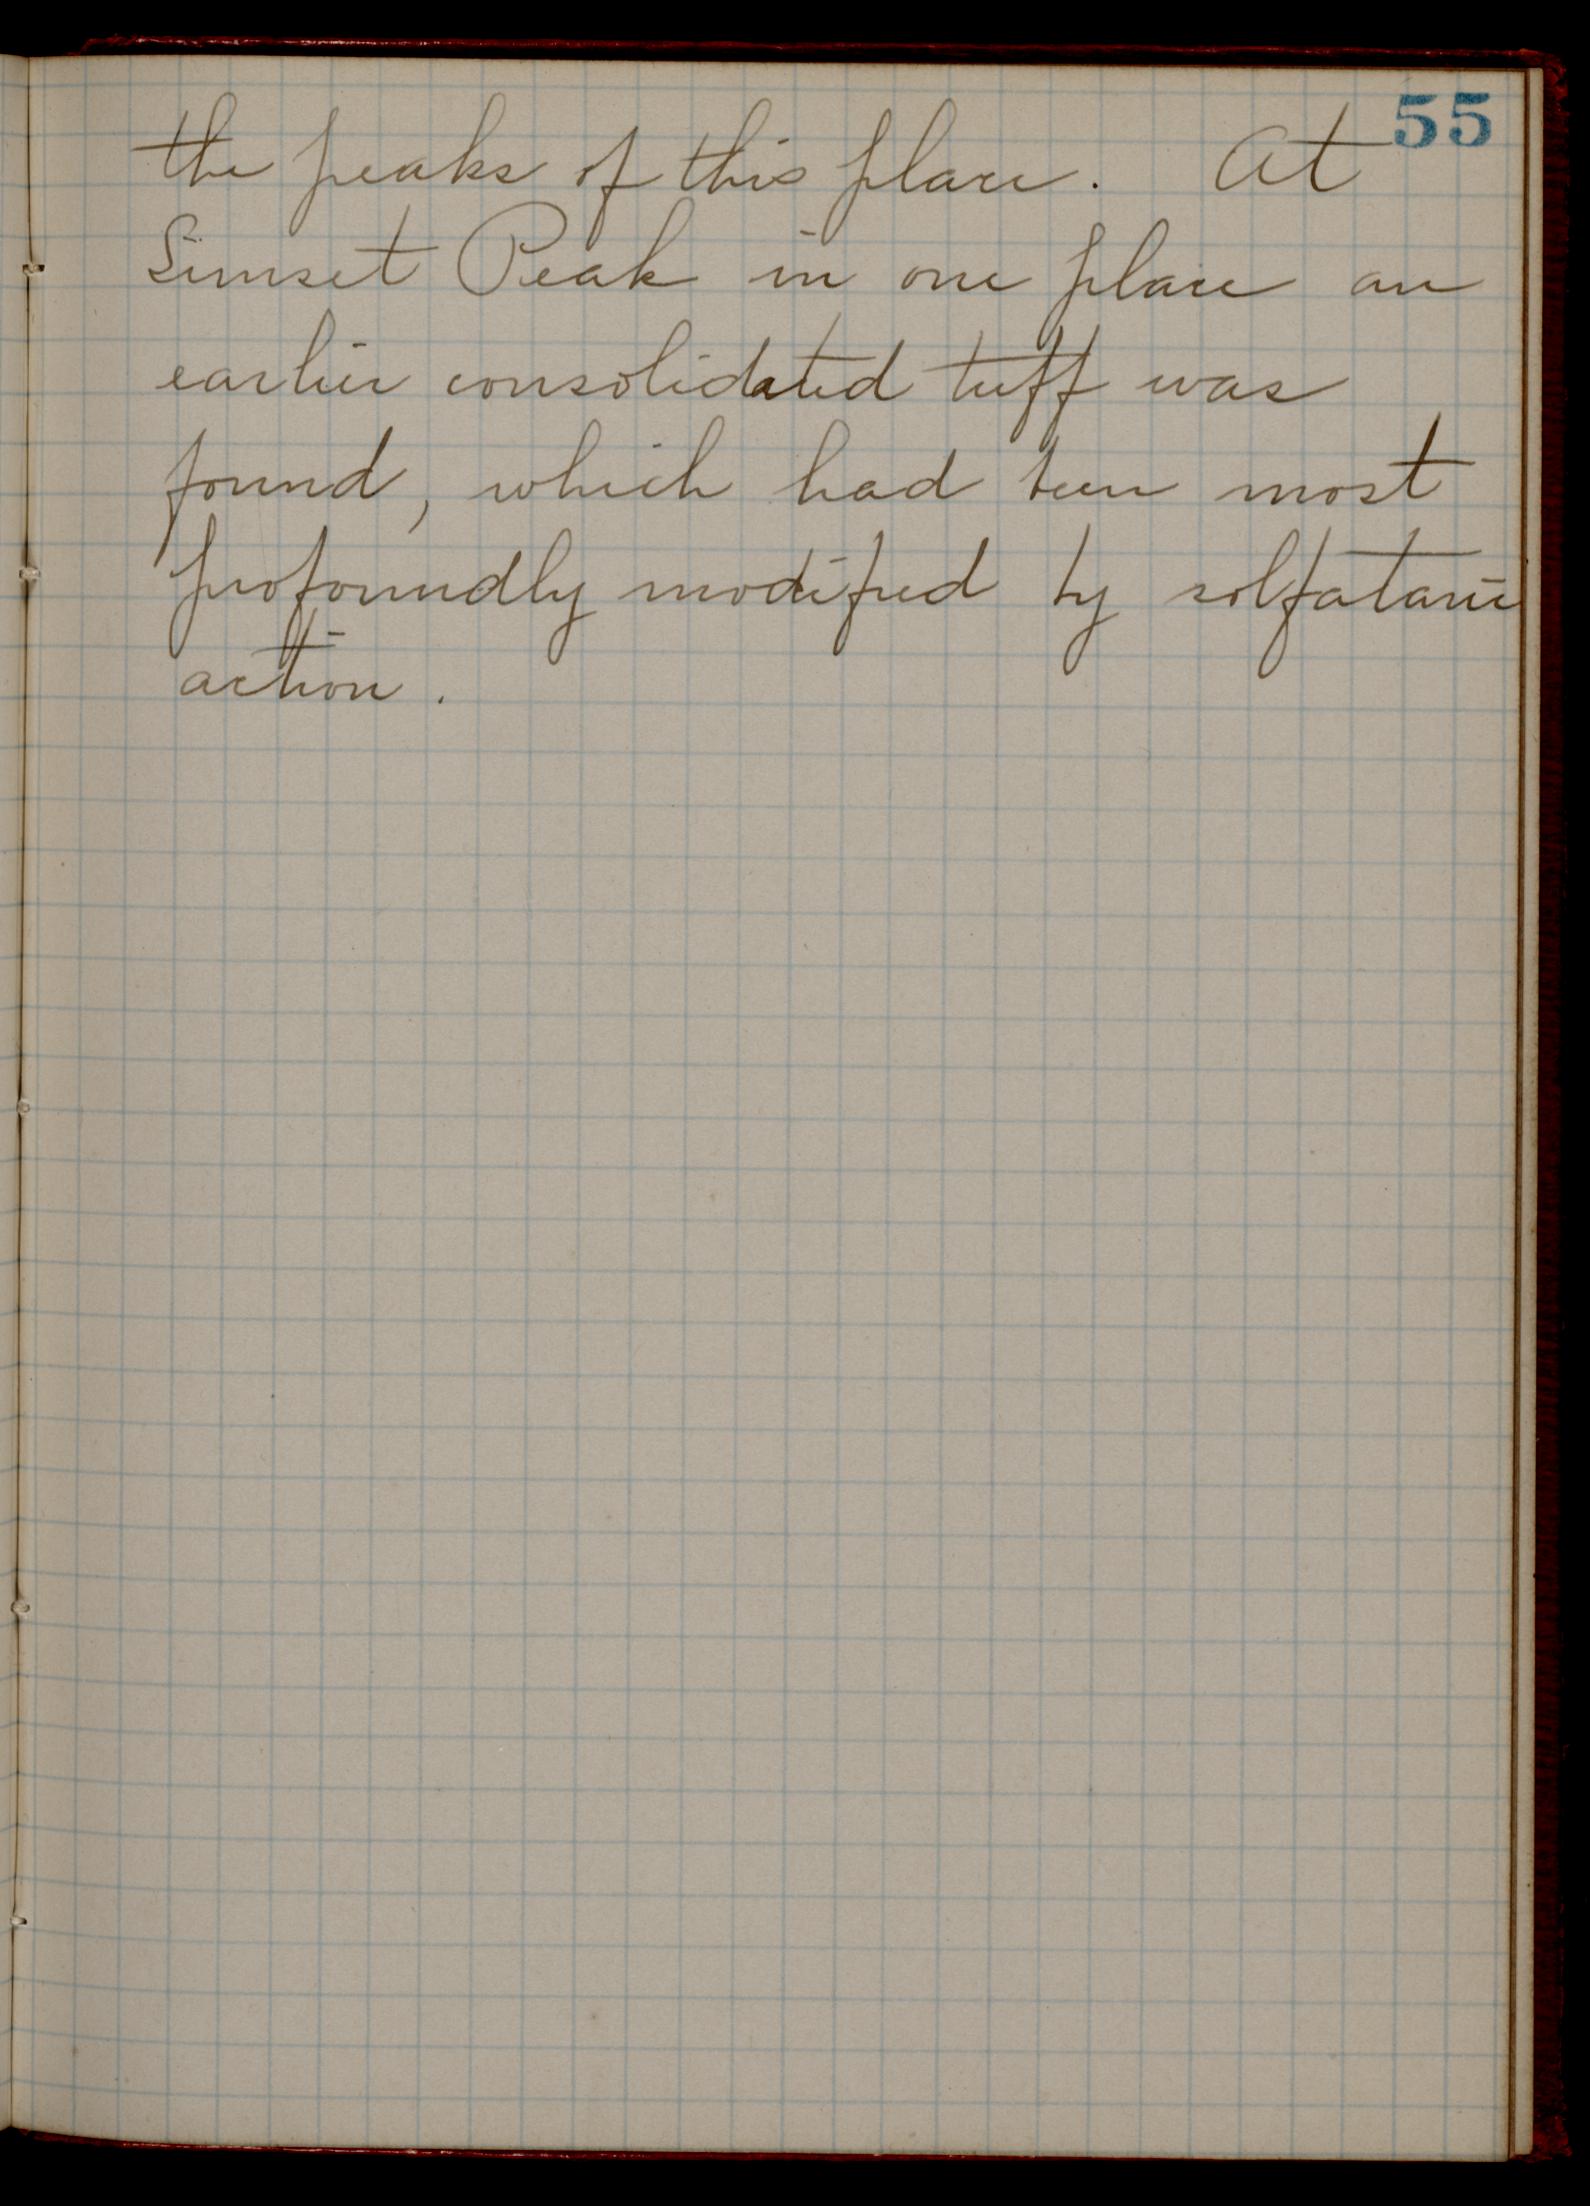 55
the peaks of this place. At
Sunset Peak in one place an
earlier consolidated tuff was
found, which had been most
profoundly modified by solfataric
action.